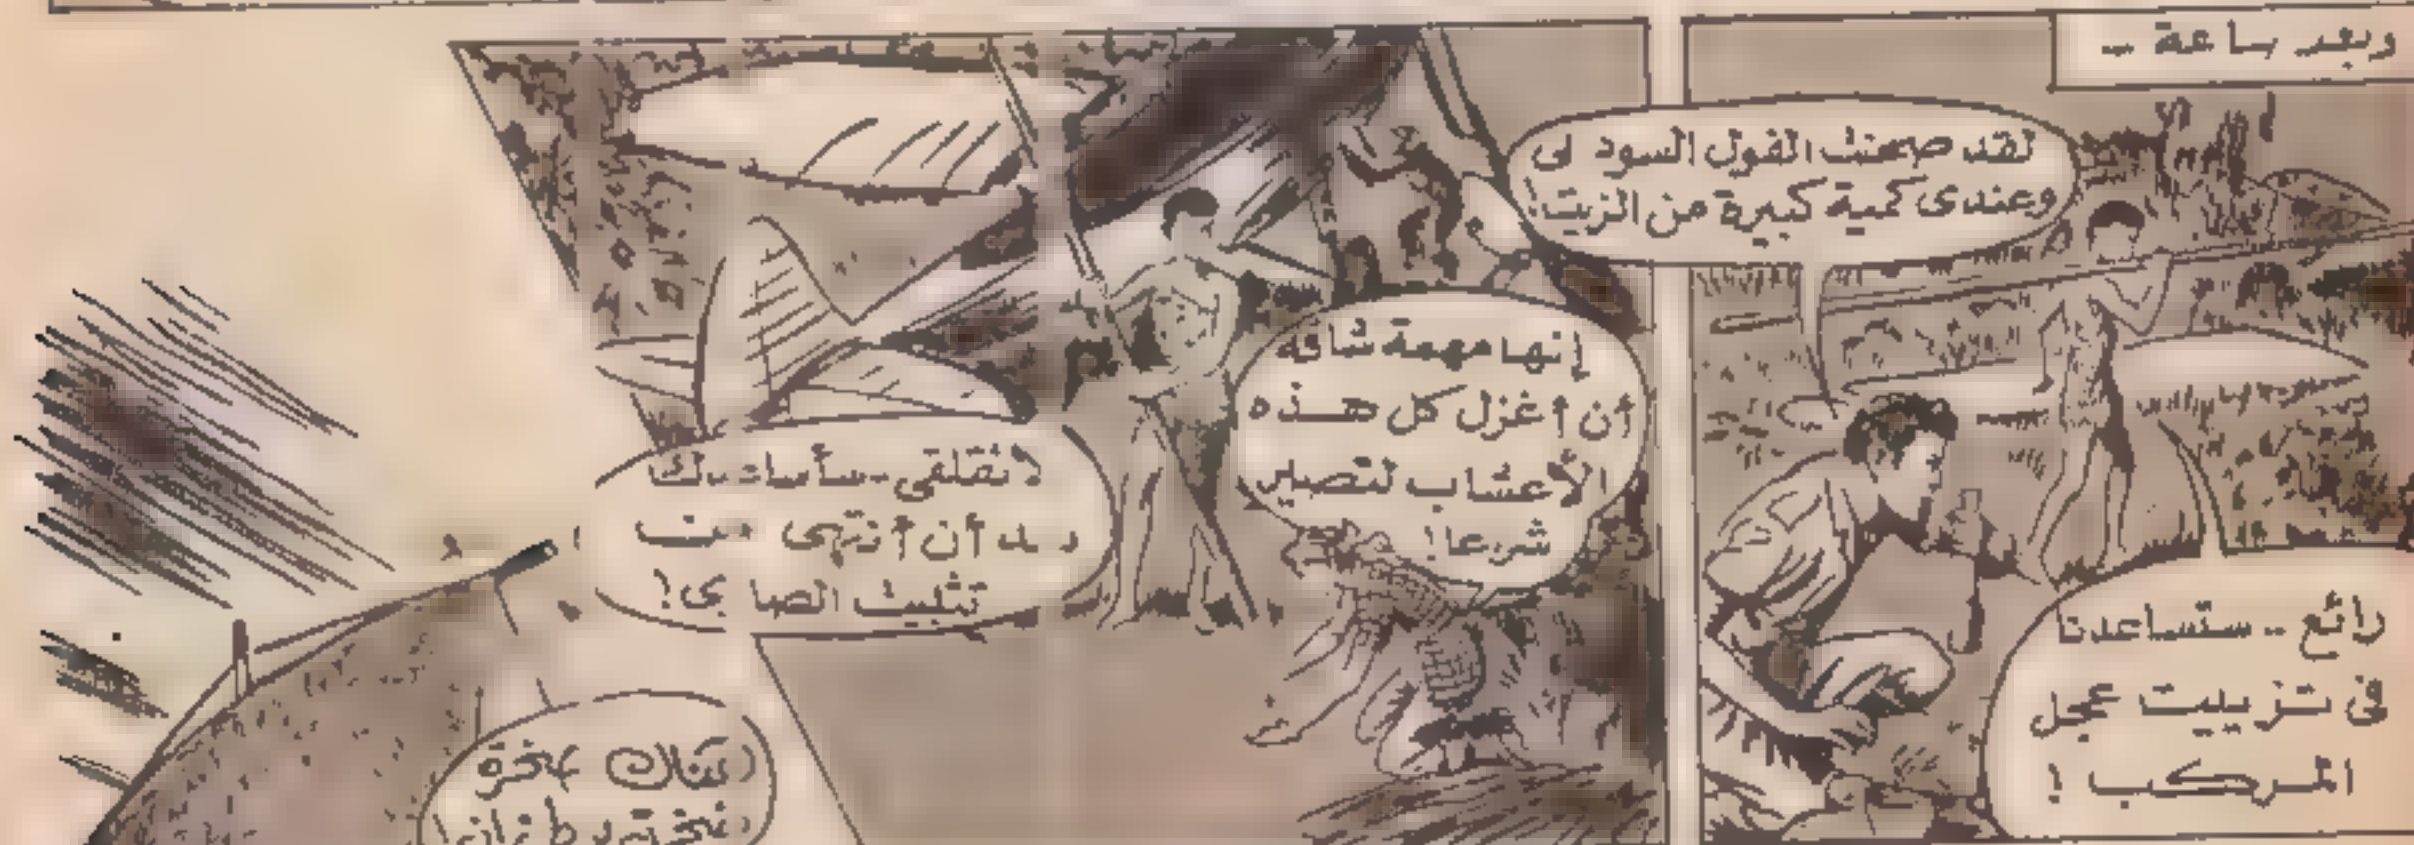 وبعد ساعة --
لقد صحنت الفول السود نى
وعندى كمية كبيرة من الزيت!
رائع -- ستساعدنا
فى تزييت عجل
المركب !
إنها مهمة شاقة
أن أغزل كل هذه
الأعشاب لتصير
شراعا!
لا تقلقى -- سأساعدك
أن أنتهى من
تثبيت الصارى!